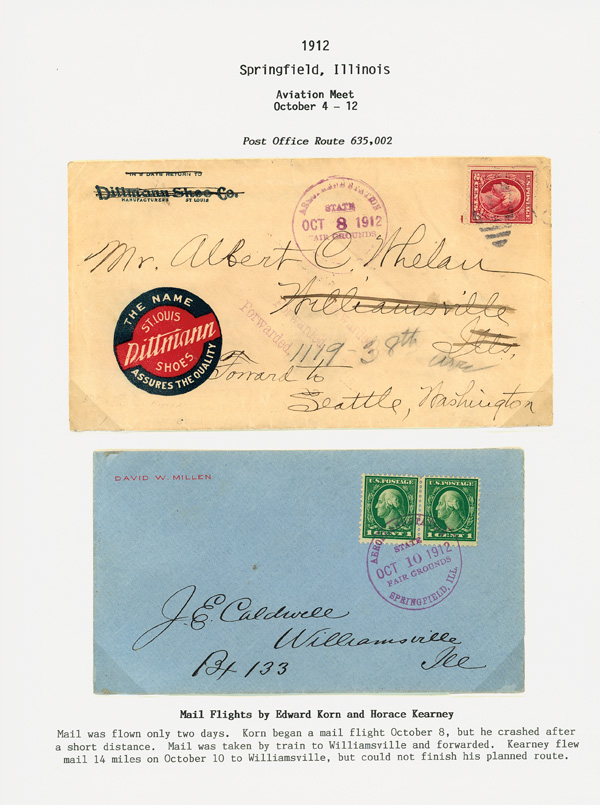 1912
Springfield, Illinois
Aviation Meet
October 4 - 12
Post Office Route 635,002
IN 5 DAYS RETURN TO
Dittmann Shoe Co.
MANUFACTURERS ST. LOUIS
STATE
OCT 8 1912
FAIR GROUNDS
Mr. Albert C. Whelan
Williamsville
Ills,
Forwarded
1119-38th
ave
Forward to
Seattle, Washington
THE NAME
ST. LOUIS
Dittmann
SHOES
ASSURES THE QUALITY
DAVID W. MILLEN
U.S. POSTAGE U.S. POSTAGE
1 CENT 1 1 CENT 1
STATE
OCT 10 1912
FAIR GROUNDS
SPRINGFIELD, ILL.
J. E. Caldwell
Williamsville
Bx 133 Ill
Mail Flights by Edward Korn and Horace Kearney
Mail was flown only two days. Korn began a mail flight October 8, but he crashed after
a short distance. Mail was taken by train to Williamsville and forwarded. Kearney flew
mail 14 miles on October 10 to Williamsville, but could not finish his planned route.